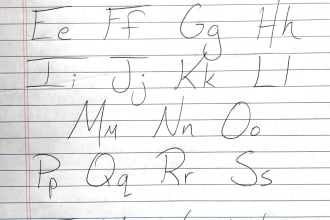 Ee Ff Gg Hh
Ii Jj Kk Ll
Mm Nn Oo
Pp Qq Rr Ss